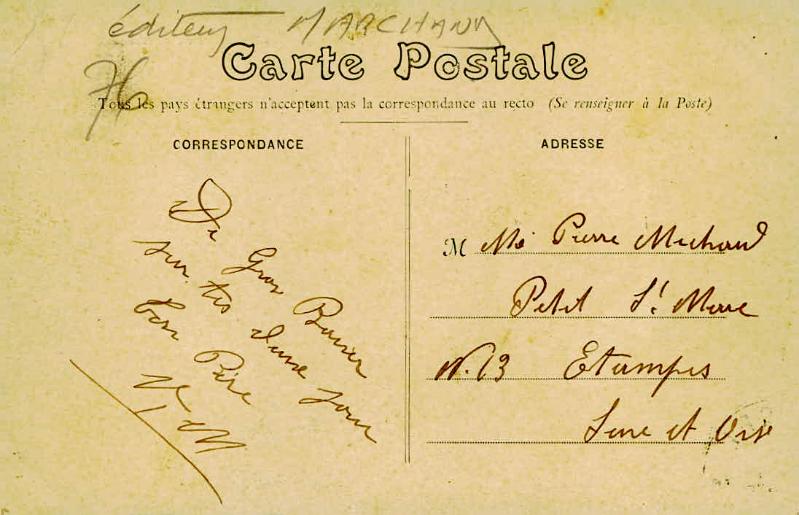 éditeur MARCHAND
Carte Postale
76
Tous les pays étrangers n'acceptent pas la correspondance au recto (Se renseigner à la Poste)
CORRESPONDANCE
De Gros Baisers
sur tes deux joues
bon Père
ADRESSE
M Mr Pierre Michaud
Petit St Mare
N. 13 Etampes
Seine et Oise